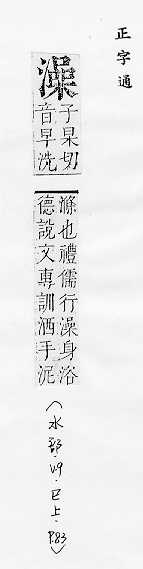 正字通
澡
子杲切
音早洗
滌也禮儒行澡身浴
德說文專訓洒手泥
(水部.四9.巳上.P.83)